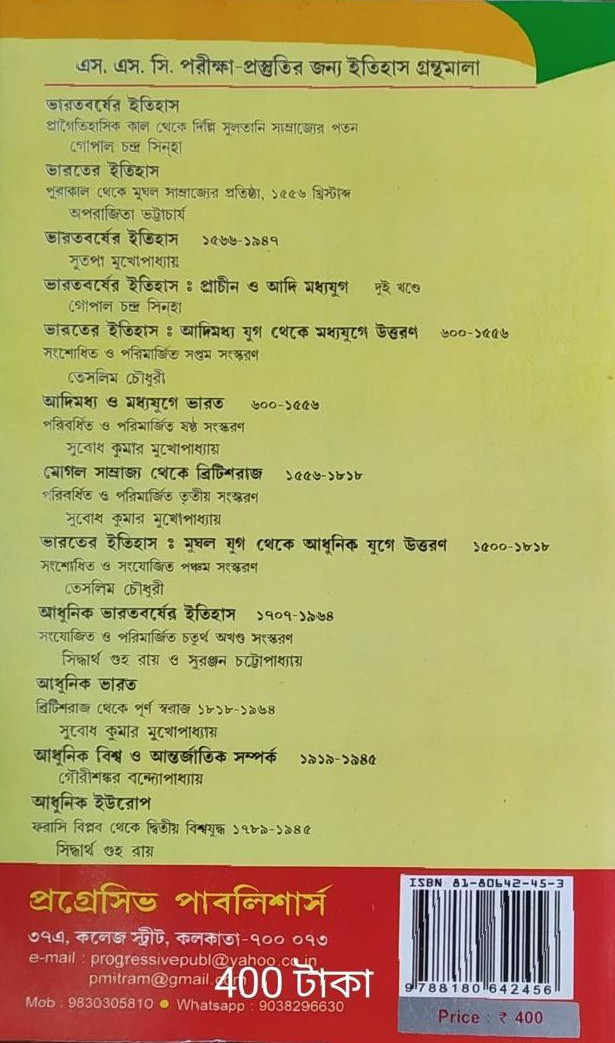 এস. এস. সি. পরীক্ষা-প্রস্তুতির জন্য ইতিহাস গ্রন্থমালা
ভারতবর্ষের ইতিহাস
প্রাগৈতিহাসিক কাল থেকে দিল্লি সুলতানি সাম্রাজ্যের পতন
গোপাল চন্দ্র সিন্‌হা
ভারতের ইতিহাস
পুরাকাল থেকে মুঘল সাম্রাজ্যের প্রতিষ্ঠা, ১৫৫৬ খ্রিস্টাব্দ
অপরাজিতা ভট্টাচার্য
ভারতবর্ষের ইতিহাস ১৫৬৬-১৯৪৭
সুতপা মুখোপাধ্যায়
ভারতবর্ষের ইতিহাস : প্রাচীন ও আদি মধ্যযুগ দুই খণ্ডে
গোপাল চন্দ্র সিন্‌হা
ভারতের ইতিহাস : আদিমধ্য যুগ থেকে মধ্যযুগে উত্তরণ ৬০০-১৫৫৬
সংশোধিত ও পরিমার্জিত সপ্তম সংস্করণ
তেসলিম চৌধুরী
আদিমধ্য ও মধ্যযুগে ভারত ৬০০-১৫৫৬
পরিবর্ধিত ও পরিমার্জিত ষষ্ঠ সংস্করণ
সুবোধ কুমার মুখোপাধ্যায়
মোগল সাম্রাজ্য থেকে ব্রিটিশরাজ ১৫৫৬-১৮১৮
পরিবর্ধিত ও পরিমার্জিত তৃতীয় সংস্করণ
সুবোধ কুমার মুখোপাধ্যায়
ভারতের ইতিহাস : মুঘল যুগ থেকে আধুনিক যুগে উত্তরণ ১৫০০-১৮১৮
সংশোধিত ও সংযোজিত পঞ্চম সংস্করণ
তেসলিম চৌধুরী
আধুনিক ভারতবর্ষের ইতিহাস ১৭০৭-১৯৬৪
সংযোজিত ও পরিমার্জিত চতুর্থ অখণ্ড সংস্করণ
সিদ্ধার্থ গুহ রায় ও সুরঞ্জন চট্টোপাধ্যায়
আধুনিক ভারত
ব্রিটিশরাজ থেকে পূর্ণ স্বরাজ ১৮১৮-১৯৬৪
সুবোধ কুমার মুখোপাধ্যায়
আধুনিক বিশ্ব ও আন্তর্জাতিক সম্পর্ক ১৯১৯-১৯৪৫
গৌরীশঙ্কর বন্দ্যোপাধ্যায়
আধুনিক ইউরোপ
ফরাসি বিপ্লব থেকে দ্বিতীয় বিশ্বযুদ্ধ ১৭৮৯-১৯৪৫
সিদ্ধার্থ গুহ রায়
প্রগ্রেসিভ পাবলিশার্স
৩৭এ, কলেজ স্ট্রীট, কলকাতা-৭০০ ০৭৩
e-mail : progressivepubl@yahoo.co.in
pmitram@gmail.com
400 টাকা
Mob : 9830305810 ● Whatsapp : 9038296630
ISBN 81-80642-45-3
9788180642456
Price : ₹ 400